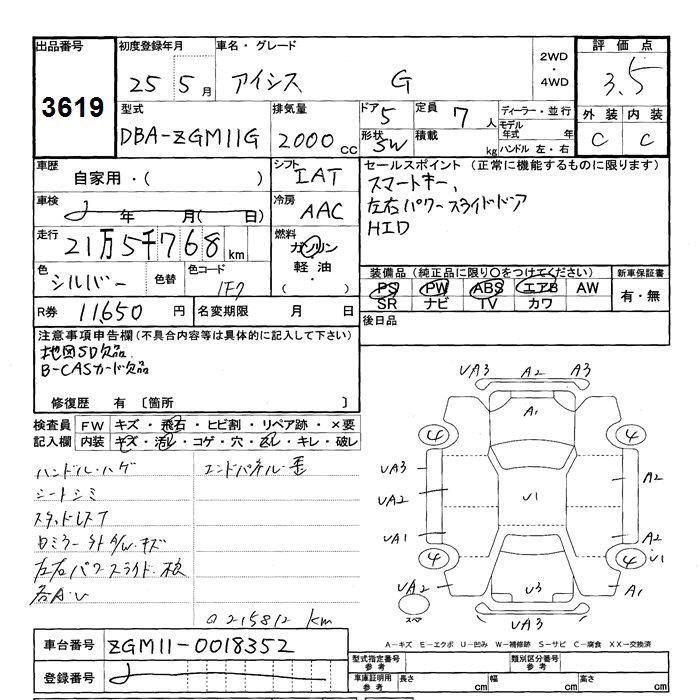 出品番号 初度登録年月 車名・グレード 2WD・4WD 評価点
3619 25 5月 アイシス G 3.5
型式 排気量 ドア 5 定員 7人 ディーラー・並行 外装 内装
DBA-ZGM11G 2000cc 形状 SW 積載 kg モデル年式 年 C C
ハンドル 左・右
車歴 シフト セールスポイント (正常に機能するものに限ります)
自家用・( ) IAT スマートキー、
車検 冷房 左右パワースライドドア
年 月( 日) AAC HID
走行 燃料
21万5千768km ガソリン
軽油・( )
色 色替 色コード 装備品 (純正品に限り○をつけてください) 新車保証書
シルバー 1F7 PS PW ABS エアB AW 有・無
SR ナビ TV カワ
R券 11,650円 名変期限 月 日 後日品
注意事項申告欄(不具合内容等は具体的に記入して下さい)
地図SD欠品
B-CASカード欠品
修復歴 有 〔箇所 〕
検査員 FW キズ・飛石・ヒビ割・リペア跡・×要
記入欄 内装 キズ・汚れ・コゲ・穴・ ・キレ・破レ
ハンドル・ハゲ エンドパネル・歪
シートシミ
スタッドレス7
左右パワースライド・
各A・U
215812 km
UA3 A2 A3
A1
4 4
UA3 A2
UA2 U1
UA1 A2
4 4 U1
UA2 U3 A1
スペア UA3
A-キズ E-エクボ U-凹み W-補修跡 S-サビ C-腐食 XX-交換済
車台番号 ZGM11-0018352
型式指定番号 参考 類別区分番号 参考
登録番号
車庫証明用 参考 長さ cm 幅 cm 高さ cm